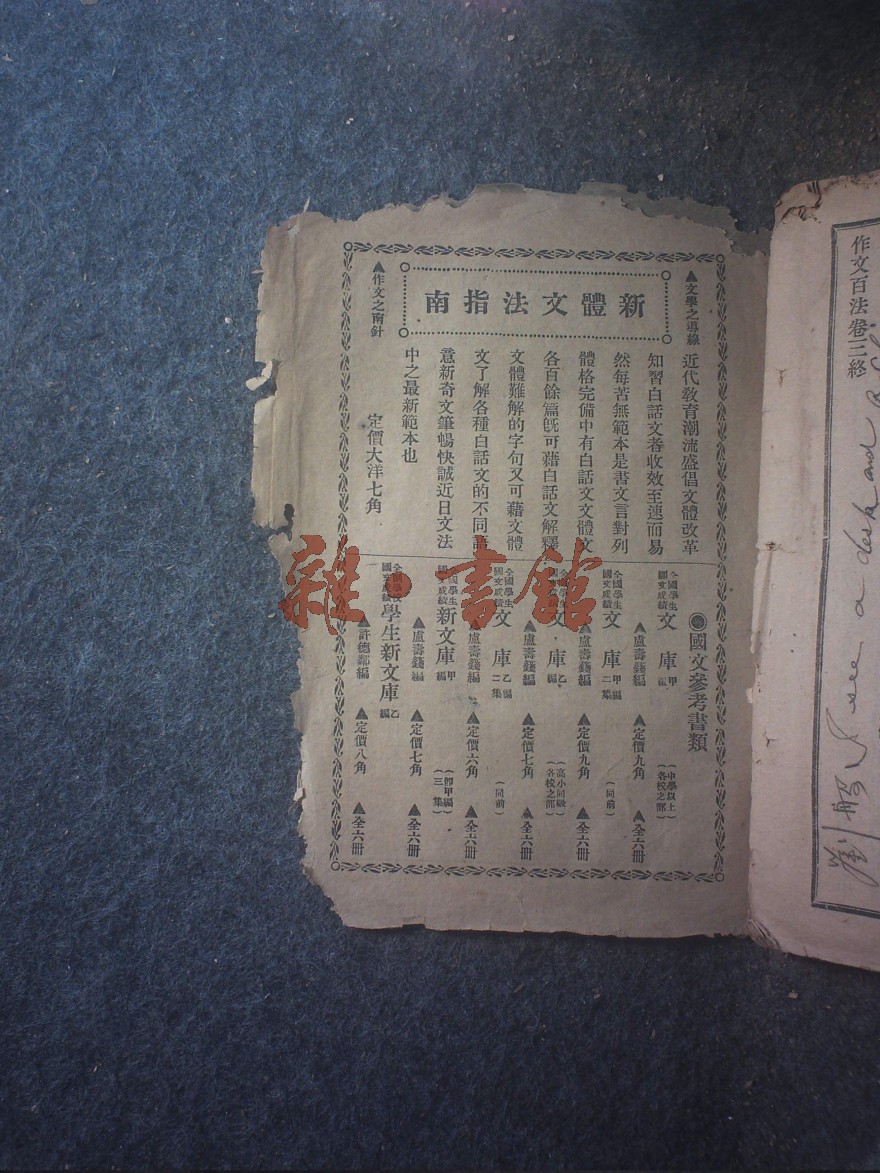 作文百法卷三終
I see a desk and a
▲文學之導線
新體文法指南
▲作文之南針
近代敎育潮流盛倡文體改革
知習白話文者收效至速而易
然每苦無範本是書文言對列
體格完備中有白話文文體文
各百餘篇旣可藉白話文解釋
文體難解的字句又可藉文體
文了解各種白話文的不同語
意新奇文筆暢快誠近日文法
中之最新範本也
定價大洋七角
◉國文參考書類
全國學生國文成績文庫甲編 (中學以上各校之部)
▲盧壽籛編 ▲定價九角 ▲全六册
全國學生國文成績文庫甲編二集 (同前)
▲盧壽籛編 ▲定價九角 ▲全六册
全國學生國文成績文庫乙編 (高小同級各校之部)
▲盧壽籛編 ▲定價七角 ▲全六册
全國學生國文成績文庫乙編二集 (同前)
▲盧壽籛編 ▲定價六角 ▲全六册
全國學生國文成績新文庫甲編 (卽甲編三集)
▲盧壽籛編 ▲定價七角 ▲全六册
全國學校國文成績學生新文庫乙編
▲許德鄰編 ▲定價八角 ▲全六册
雜·書館